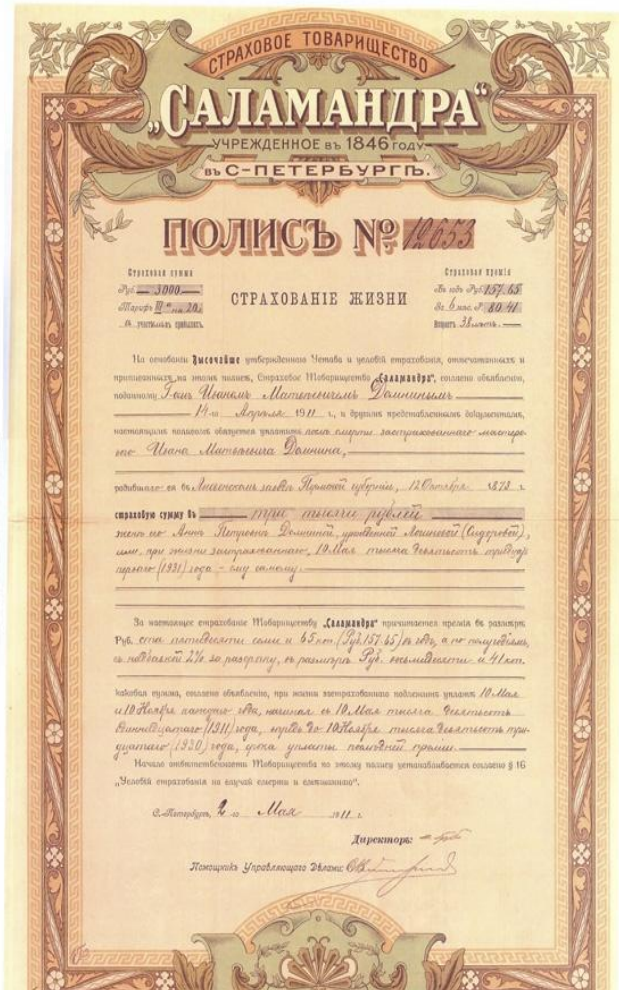 СТРАХОВОЕ ТОВАРИЩЕСТВО
„САЛАМАНДРА“
УЧРЕЖДЕННОЕ въ 1846 году
въ С-ПЕТЕРБУРГѢ.
ПОЛИСЪ № 12653
Страховая сумма
Страховая премія
Руб. 3000
Въ годъ Руб. 157.65
Тарифъ III на 20 л.
За 6 мѣс. Р. 80.41
съ участіемъ въ прибыляхъ.
Возрастъ 38 лѣтъ.
СТРАХОВАНІЕ ЖИЗНИ
На основаніи Высочайше утвержденнаго Устава и условій страхованія, отпечатанныхъ и
прописанныхъ на этомъ полисѣ, Страховое Товарищество „Саламандра“, согласно объявленію,
поданному Г-омъ Иваномъ Матвѣевичемъ Домнинымъ
14-го Апрѣля 1911 г., и другимъ представленнымъ документамъ,
настоящимъ полисомъ обязуется уплатить послѣ смерти застрахованнаго мастерового
Ивана Матвѣевича Домнина,
родившагося въ Лысвенскомъ заводѣ Пермской губерніи, 12 Октября 1873 г.
страховую сумму въ три тысячи рублей
женѣ его Аннѣ Петровнѣ Домниной, урожденной (Сидоровой),
или, при жизни застрахованнаго, 10 Мая тысяча девятьсотъ тридцать
перваго (1931) года – ему самому.
За настоящее страхованіе Товариществу „Саламандра“ причитается премія въ размѣрѣ
Руб. ста пятидесяти семи и 65 коп. (Руб. 157.65) въ годъ, а по полугодіямъ,
съ надбавкой 2% за разсрочку, въ размѣрѣ Руб. восьмидесяти и 41 коп.
каковая сумма, согласно объявленію, при жизни застрахованнаго подлежитъ уплатѣ 10 Мая
и 10 Ноября каждаго года, начиная съ 10 Мая тысяча девятьсотъ
одиннадцатаго (1911) года, впредь до 10 Ноября тысяча девятьсотъ тридцатаго
(1930) года, срока уплаты послѣдней преміи.
Начало отвѣтственности Товарищества по этому полису устанавливается согласно § 16
„Условій страхованія на случай смерти и дожитія“.
С.-Петербургъ, 2 го Мая 1911 г.
Директоръ:
Помощникъ Управляющаго Дѣлами: